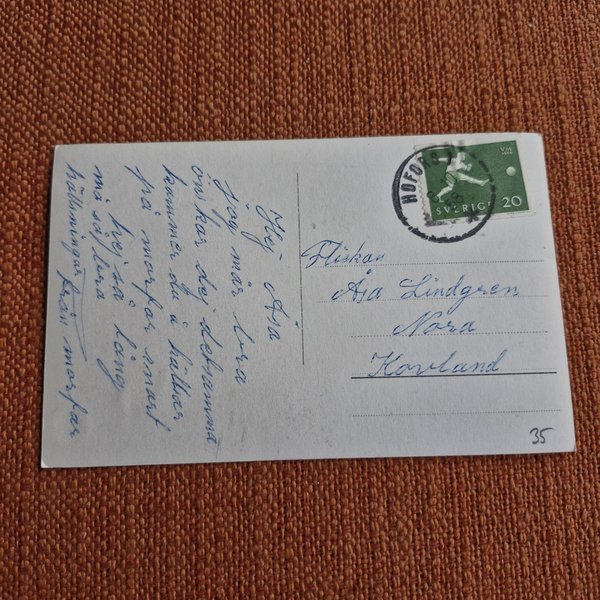 Hej Åsa
jag mår bra
önskar dej detsamma
kommer du å hälsar
på morfar snart
hej så läng
må så bra
hälsningar från morfar
HOFORS
58
VM
1958
SVERIGE 20
Flickan
Åsa Lindgren
Nora
Kovland
35